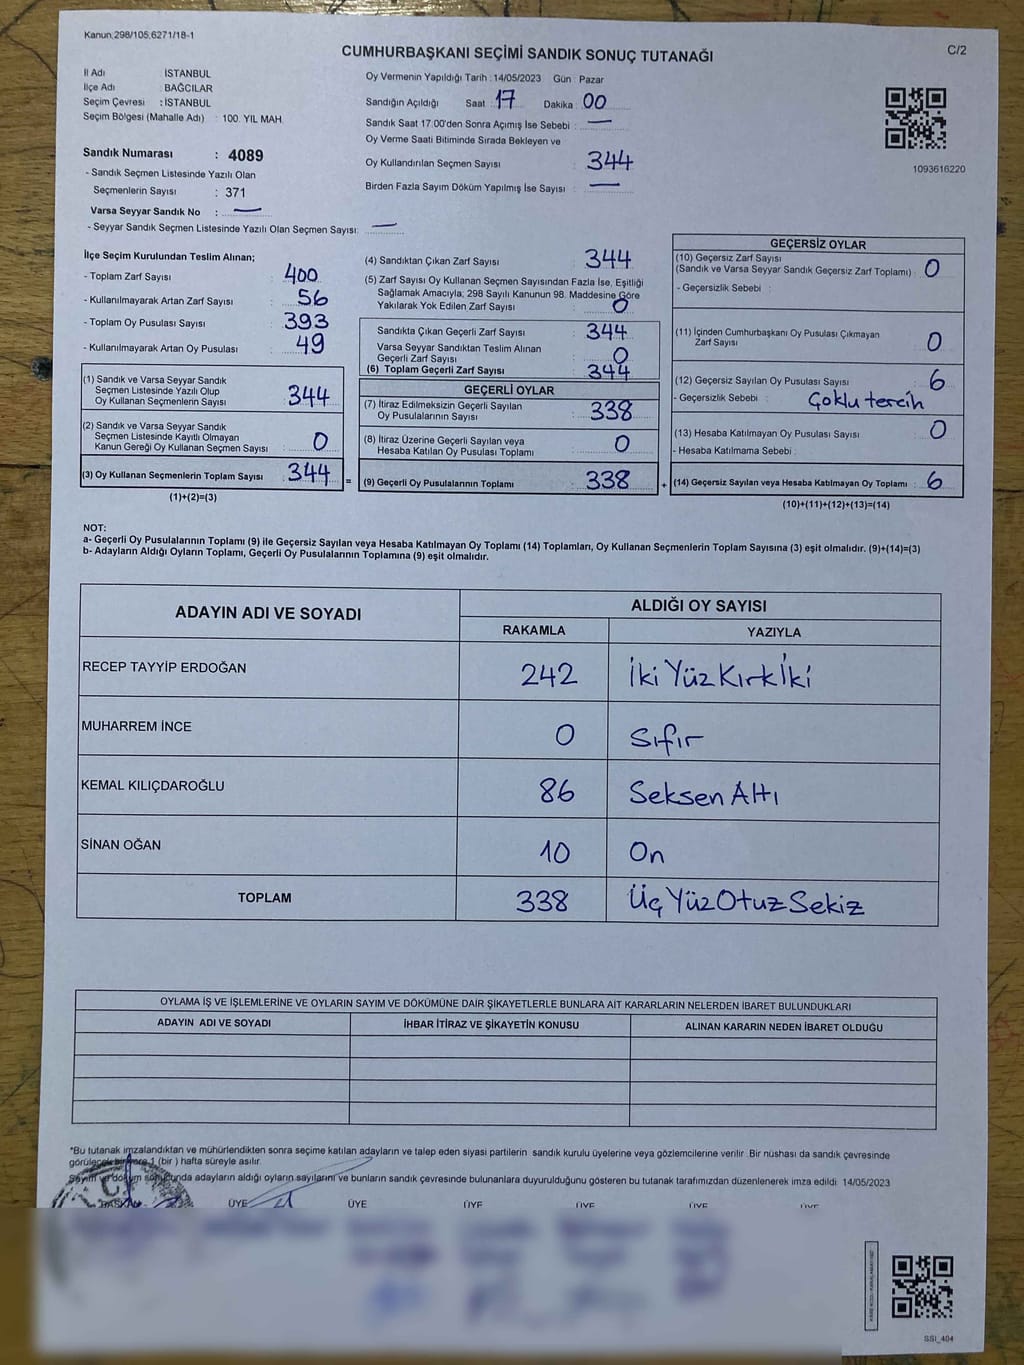 Kanun:298/105,6271/18-1
C/2
CUMHURBAŞKANI SEÇİMİ SANDIK SONUÇ TUTANAĞI
İl Adı : İSTANBUL
İlçe Adı : BAĞCILAR
Seçim Çevresi : İSTANBUL
Seçim Bölgesi (Mahalle Adı) : 100. YIL MAH.
Sandık Numarası : 4089
- Sandık Seçmen Listesinde Yazılı Olan
Seçmenlerin Sayısı : 371
Varsa Seyyar Sandık No : —
- Seyyar Sandık Seçmen Listesinde Yazılı Olan Seçmen Sayısı: —
Oy Vermenin Yapıldığı Tarih : 14/05/2023 Gün Pazar
Sandığın Açıldığı Saat : 17 Dakika : 00
Sandık Saat 17:00'den Sonra Açımış İse Sebebi : —
Oy Verme Saati Bitiminde Sırada Bekleyen ve
Oy Kullandırılan Seçmen Sayısı : 344
Birden Fazla Sayım Döküm Yapılmış İse Sayısı : —
1093616220
İlçe Seçim Kurulundan Teslim Alınan;
- Toplam Zarf Sayısı : 400
- Kullanılmayarak Artan Zarf Sayısı : 56
- Toplam Oy Pusulası Sayısı : 393
- Kullanılmayarak Artan Oy Pusulası : 49
(1) Sandık ve Varsa Seyyar Sandık
Seçmen Listesinde Yazılı Olup
Oy Kullanan Seçmenlerin Sayısı : 344
(2) Sandık ve Varsa Seyyar Sandık
Seçmen Listesinde Kayıtlı Olmayan
Kanun Gereği Oy Kullanan Seçmen Sayısı : 0
(3) Oy Kullanan Seçmenlerin Toplam Sayısı : 344
=
(1)+(2)=(3)
(4) Sandıktan Çıkan Zarf Sayısı : 344
(5) Zarf Sayısı Oy Kullanan Seçmen Sayısından Fazla İse, Eşitliği
Sağlamak Amacıyla, 298 Sayılı Kanunun 98. Maddesine Göre
Yakılarak Yok Edilen Zarf Sayısı : 0
Sandıkta Çıkan Geçerli Zarf Sayısı : 344
Varsa Seyyar Sandıktan Teslim Alınan
Geçerli Zarf Sayısı : 0
(6) Toplam Geçerli Zarf Sayısı : 344
GEÇERLİ OYLAR
(7) İtiraz Edilmeksizin Geçerli Sayılan
Oy Pusulalarının Sayısı : 338
(8) İtiraz Üzerine Geçerli Sayılan veya
Hesaba Katılan Oy Pusulası Toplamı : 0
(9) Geçerli Oy Pusulalarının Toplamı : 338
+
GEÇERSİZ OYLAR
(10) Geçersiz Zarf Sayısı
(Sandık ve Varsa Seyyar Sandık Geçersiz Zarf Toplamı) : 0
- Geçersizlik Sebebi :
(11) İçinden Cumhurbaşkanı Oy Pusulası Çıkmayan
Zarf Sayısı : 0
(12) Geçersiz Sayılan Oy Pusulası Sayısı : 6
- Geçersizlik Sebebi : Çoklu tercih
(13) Hesaba Katılmayan Oy Pusulası Sayısı : 0
- Hesaba Katılmama Sebebi :
(14) Geçersiz Sayılan veya Hesaba Katılmayan Oy Toplamı : 6
(10)+(11)+(12)+(13)=(14)
NOT:
a- Geçerli Oy Pusulalarının Toplamı (9) ile Geçersiz Sayılan veya Hesaba Katılmayan Oy Toplamı (14) Toplamları, Oy Kullanan Seçmenlerin Toplam Sayısına (3) eşit olmalıdır. (9)+(14)=(3)
b- Adayların Aldığı Oyların Toplamı, Geçerli Oy Pusulalarının Toplamına (9) eşit olmalıdır.
ADAYIN ADI VE SOYADI
ALDIĞI OY SAYISI
RAKAMLA YAZIYLA
RECEP TAYYİP ERDOĞAN 242 İki Yüz Kırk İki
MUHARREM İNCE 0 Sıfır
KEMAL KILIÇDAROĞLU 86 Seksen Altı
SİNAN OĞAN 10 On
TOPLAM 338 Üç Yüz Otuz Sekiz
OYLAMA İŞ VE İŞLEMLERİNE VE OYLARIN SAYIM VE DÖKÜMÜNE DAİR ŞİKAYETLERLE BUNLARA AİT KARARLARIN NELERDEN İBARET BULUNDUKLARI
ADAYIN ADI VE SOYADI İHBAR İTİRAZ VE ŞİKAYETİN KONUSU ALINAN KARARIN NEDEN İBARET OLDUĞU
*Bu tutanak imzalandıktan ve mühürlendikten sonra seçime katılan adayların ve talep eden siyasi partilerin sandık kurulu üyelerine veya gözlemcilerine verilir. Bir nüshası da sandık çevresinde
görülecek bir yere 1 (bir ) hafta süreyle asılır.
Sayım ve döküm sonucunda adayların aldığı oyların sayılarını ve bunların sandık çevresinde bulunanlara duyurulduğunu gösteren bu tutanak tarafımızdan düzenlenerek imza edildi. 14/05/2023
BAŞKAN ÜYE ÜYE ÜYE ÜYE ÜYE ÜYE
SSI_404